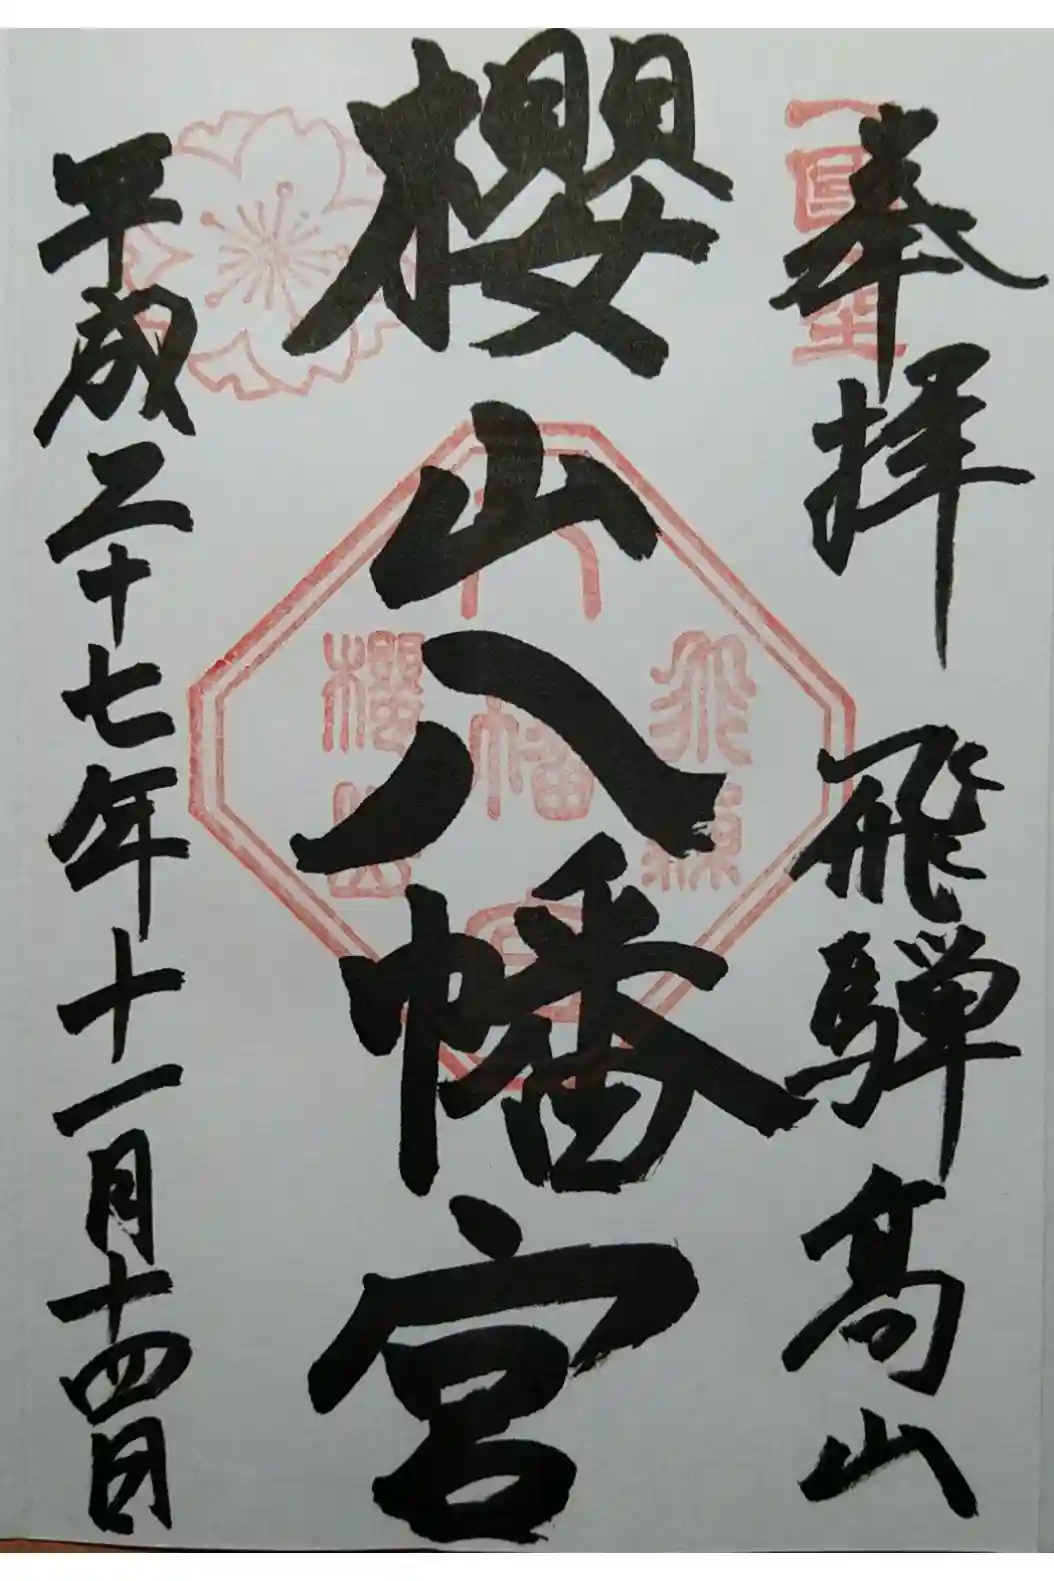 奉拝 飛騨高山
櫻山八幡宮
平成二十七年十一月十四日
八幡宮
飛騨
櫻山